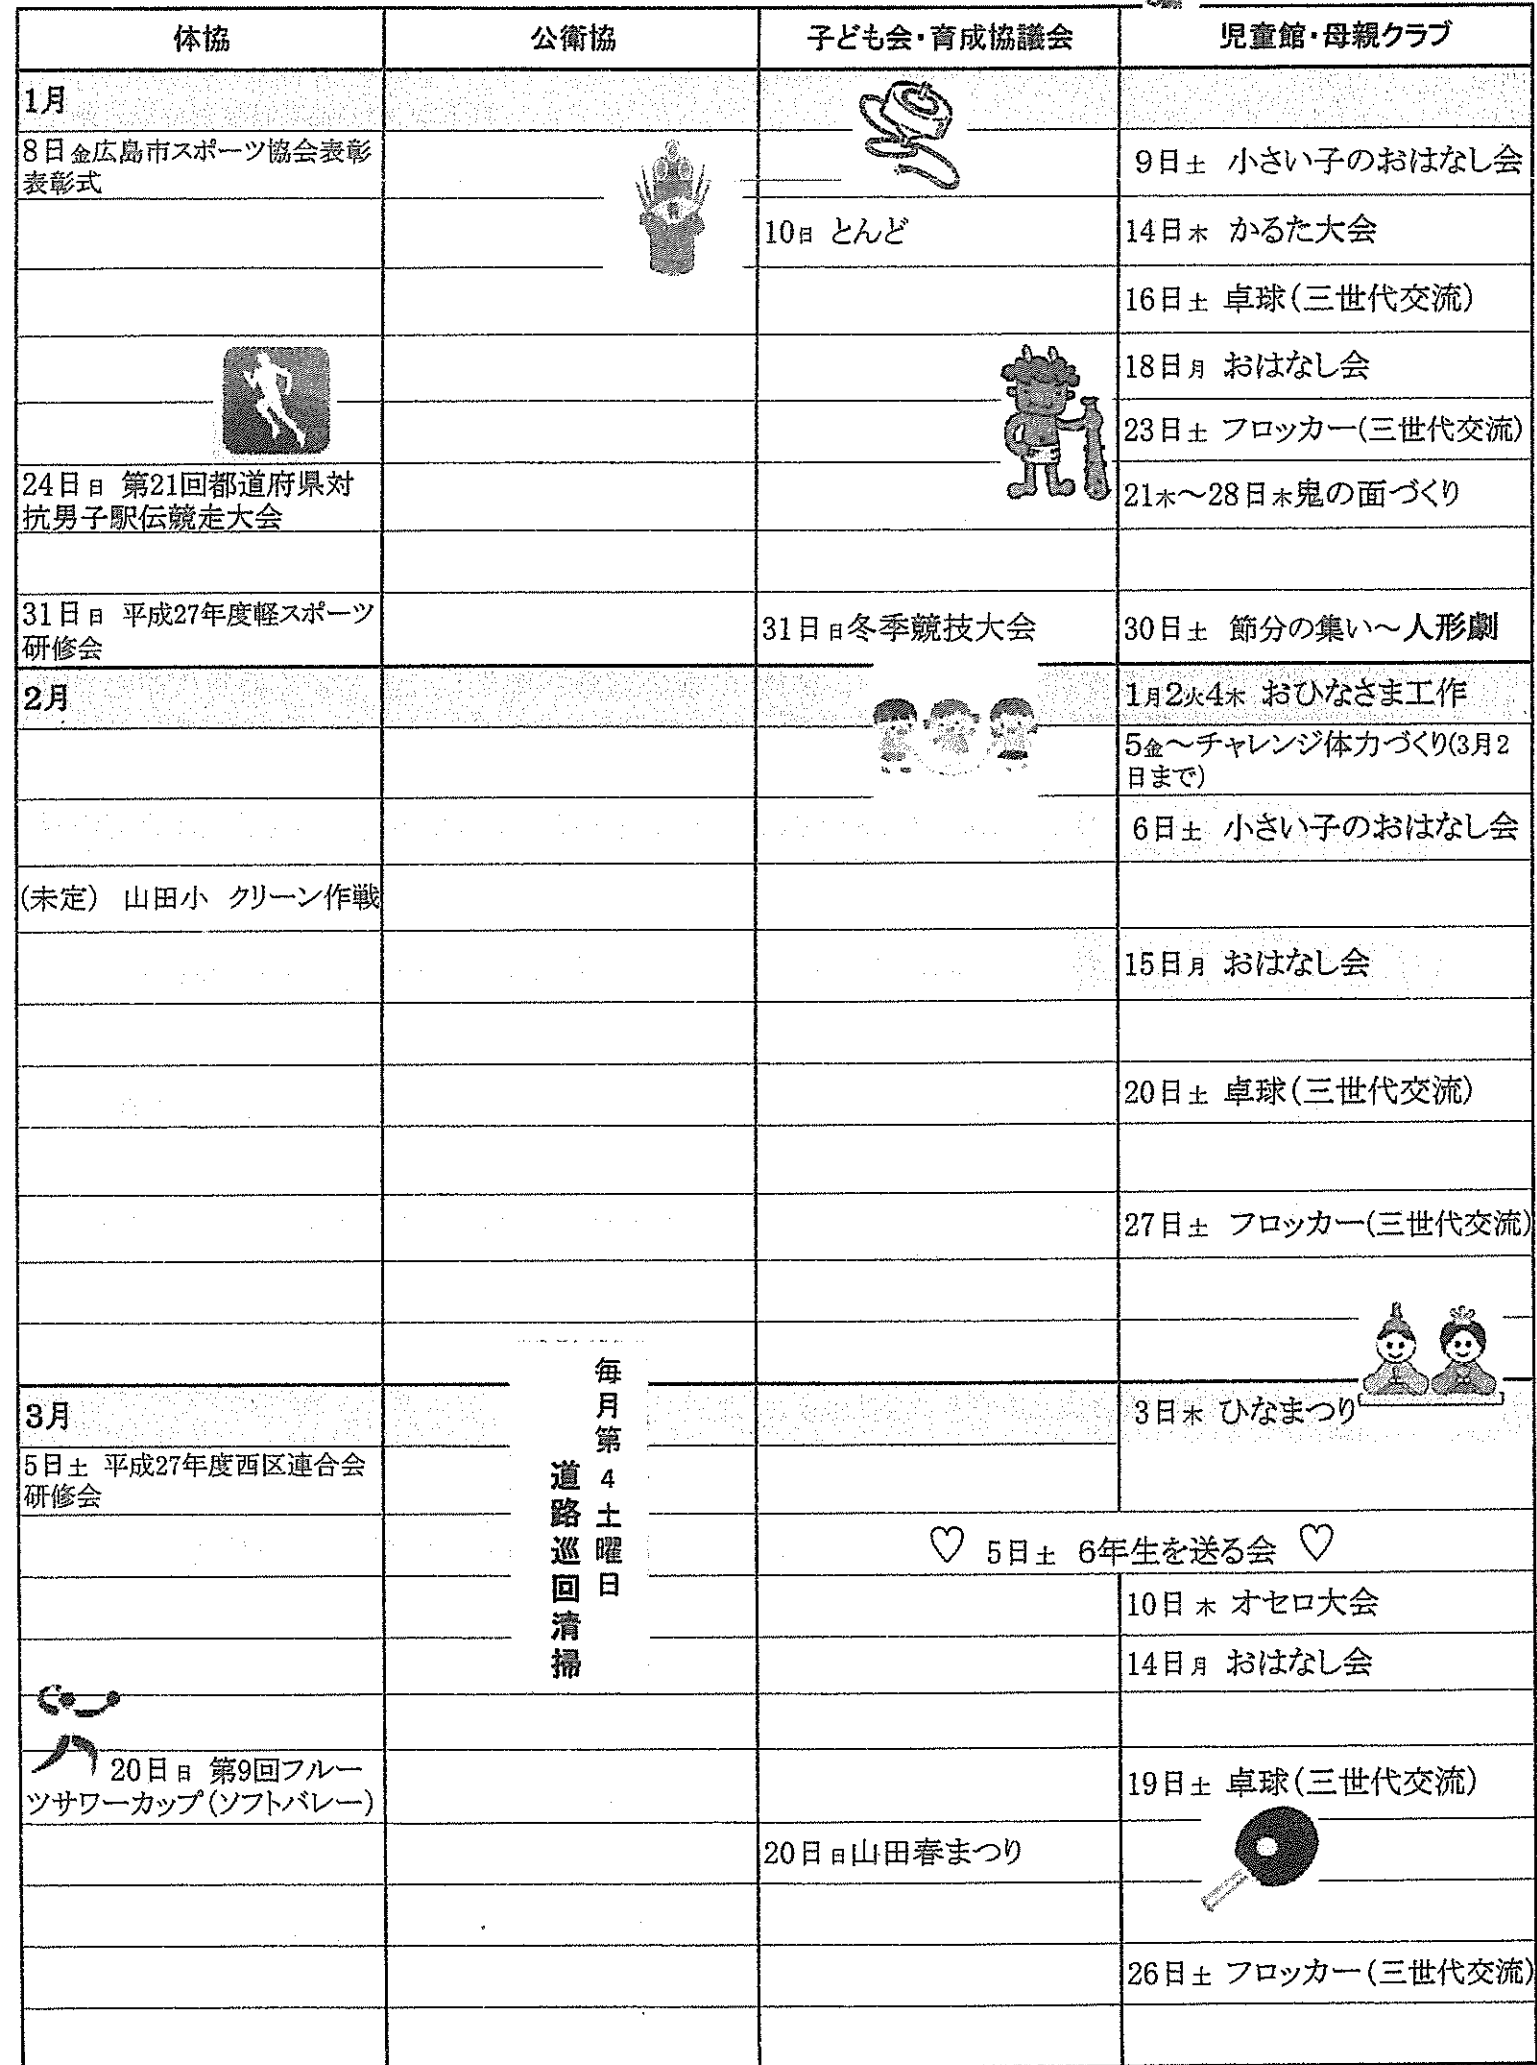 体協 公衛協 子ども会・育成協議会 児童館・母親クラブ
1月
8日金広島市スポーツ協会表彰
表彰式
9日土 小さい子のおはなし会
10日 とんど
14日木 かるた大会
16日土 卓球(三世代交流)
18日月 おはなし会
23日土 フロッカー(三世代交流)
24日日 第21回都道府県対
抗男子駅伝競走大会
21木～28日木鬼の面づくり
31日日 平成27年度軽スポーツ
研修会
31日日冬季競技大会
30日土 節分の集い～人形劇
2月
1月2火4木 おひなさま工作
5金～チャレンジ体力づくり(3月2
日まで)
6日土 小さい子のおはなし会
(未定) 山田小 クリーン作戦
15日月 おはなし会
20日土 卓球(三世代交流)
27日土 フロッカー(三世代交流)
3月
毎月第4土曜日
道路巡回清掃
3日木 ひなまつり
5日土 平成27年度西区連合会
研修会
♡ 5日土 6年生を送る会 ♡
10日木 オセロ大会
14日月 おはなし会
20日日 第9回フルー
ツサワーカップ(ソフトバレー)
19日土 卓球(三世代交流)
20日日山田春まつり
26日土 フロッカー(三世代交流)